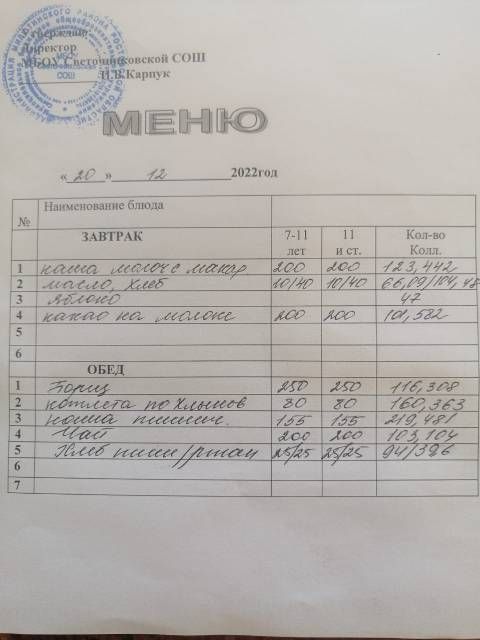 Утверждаю
Директор
МБОУ Светочниковской СОШ
И.В.Карпук
МЕНЮ
« 20 » 12 2022год
№ Наименование блюда
ЗАВТРАК 7-11 лет 11 и ст. Кол-во Колл.
1 каша молоч с макар 200 200 123,442
2 масло, хлеб 10/40 10/40 66,09/104,48
3 яблоко 47
4 какао на молоке 200 200 101,582
5
6
ОБЕД
1 Борщ 250 250 116,308
2 котлета по Хлынов 80 80 160,363
3 каша пшенич. 155 155 219,481
4 Чай 200 200 103,104
5 Хлеб пшен/ржан 25/25 25/25
6
7